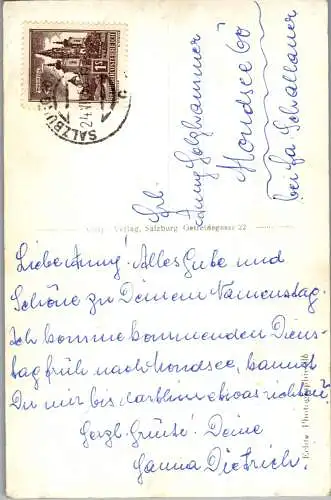 SALZBURG
24.VI
REPUBLIK ÖSTERREICH
Frl.
Anny Holzhammer
Mondsee 60
bei Fa. Schallauer
Verlag, Salzburg Getreidegasse 22
Liebe Anny! Alles Gute und
Schöne zu Deinem Namenstag.
Ich komme kommenden Diens-
tag früh nach Mondsee, kannst
Du mir bis dorthin etwas richten?
Herzl. Grüße! Deine
Hanna Dietrich.
Echte Photographie